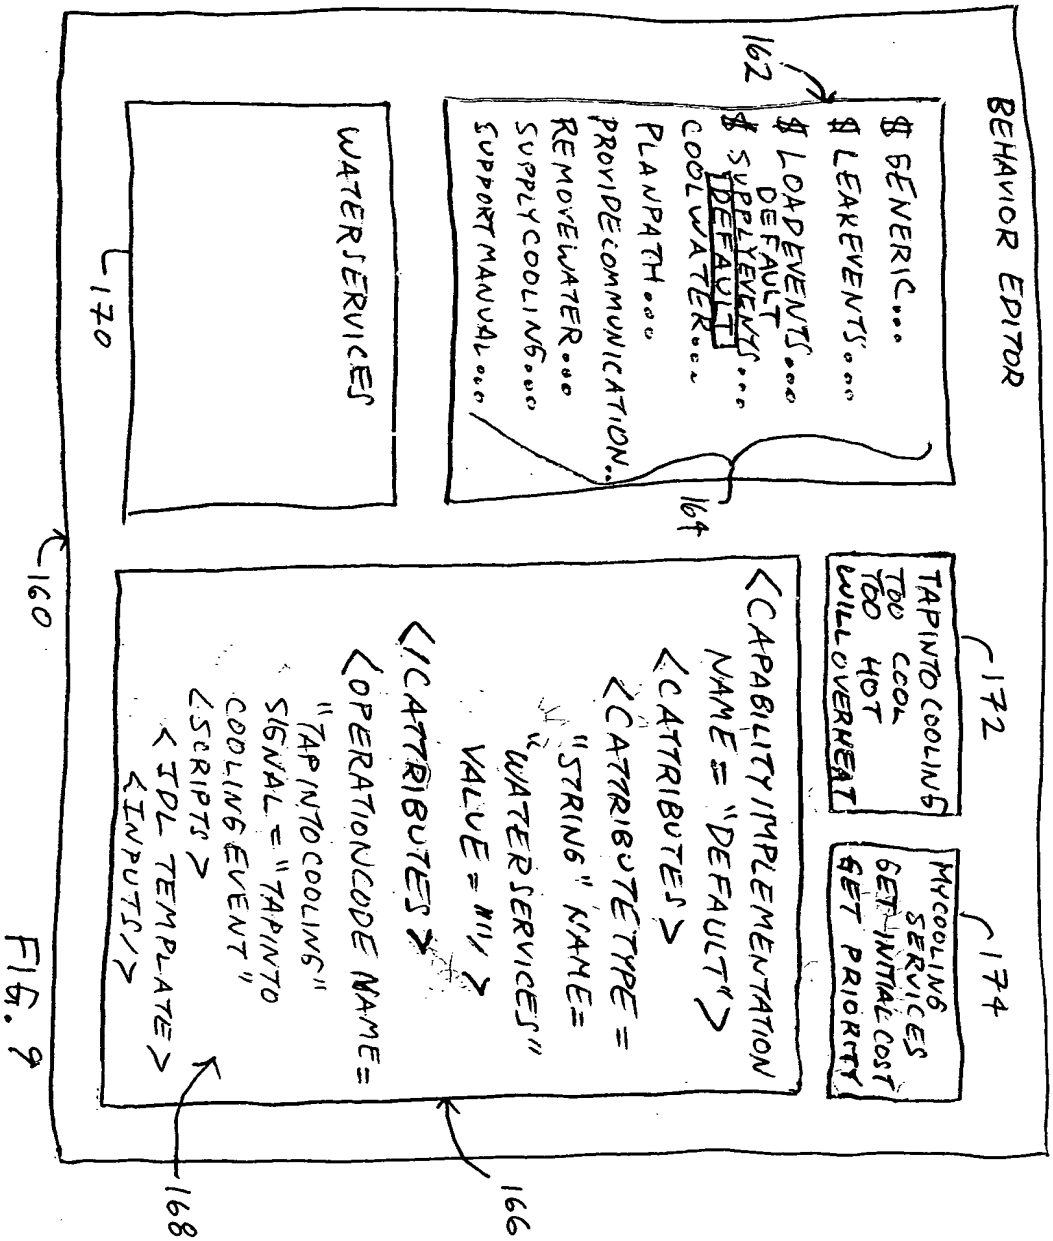 BEHAVIOR EDITOR
162
$ GENERIC...
$ LEAKEVENTS...
$ LOADEVENTS...
DEFAULT
$ SUPPLYEVENTS...
DEFAULT
COOLWATER...
PLANPATH...
PROVIDECOMMUNICATION..
REMOVEWATER...
SUPPLYCOOLING...
SUPPORTMANUAL...
164
WATERSERVICES
170
172
TAPINTOCOOLING
TOO COOL
TOO HOT
WILLOVERHEAT
174
MYCOOLING
SERVICES
GET INITIALCOST
GET PRIORITY
<CAPABILITYIMPLEMENTATION
NAME = "DEFAULT">
<CATTRIBUTES>
<CATTRIBUTETYPE =
"STRING" NAME=
"WATERSERVICES"
VALUE = "">
</CATTRIBUTES>
<OPERATIONCODE NAME=
"TAPINTOCOOLING"
SIGNAL = "TAPINTO
COOLINGEVENT"
<SCRIPTS>
<JDL TEMPLATE>
<INPUTS/>
166
168
160
FIG. 9